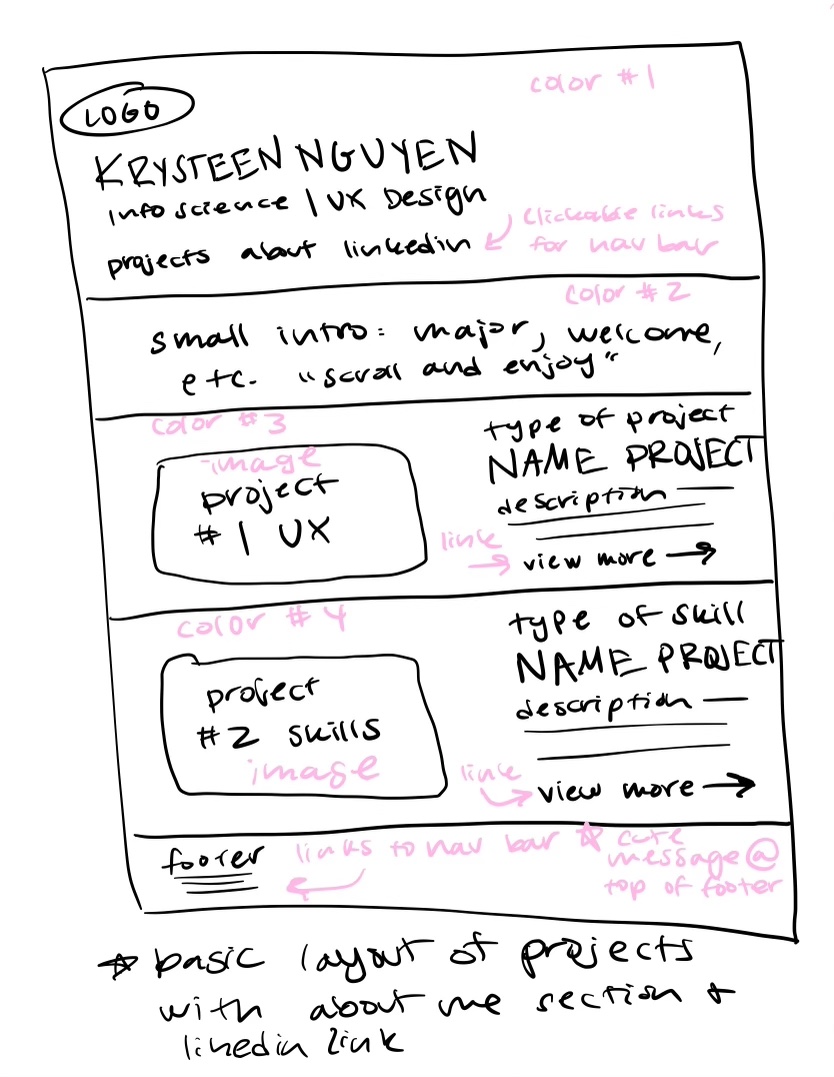 color #1
LOGO
KRYSTEEN NGUYEN
info science | UX Design
projects about linkedin
clickable links
for nav bar
color #2
small intro: major, welcome,
etc. "scroll and enjoy"
color #3
image
project
#1 UX
type of project
NAME PROJECT
description
link
view more →
color #4
project
#2 skills
image
type of skill
NAME PROJECT
description
link
view more →
footer
links to nav bar
☆ cute
message @
top of footer
☆ basic layout of projects
with about me section +
linkedin link